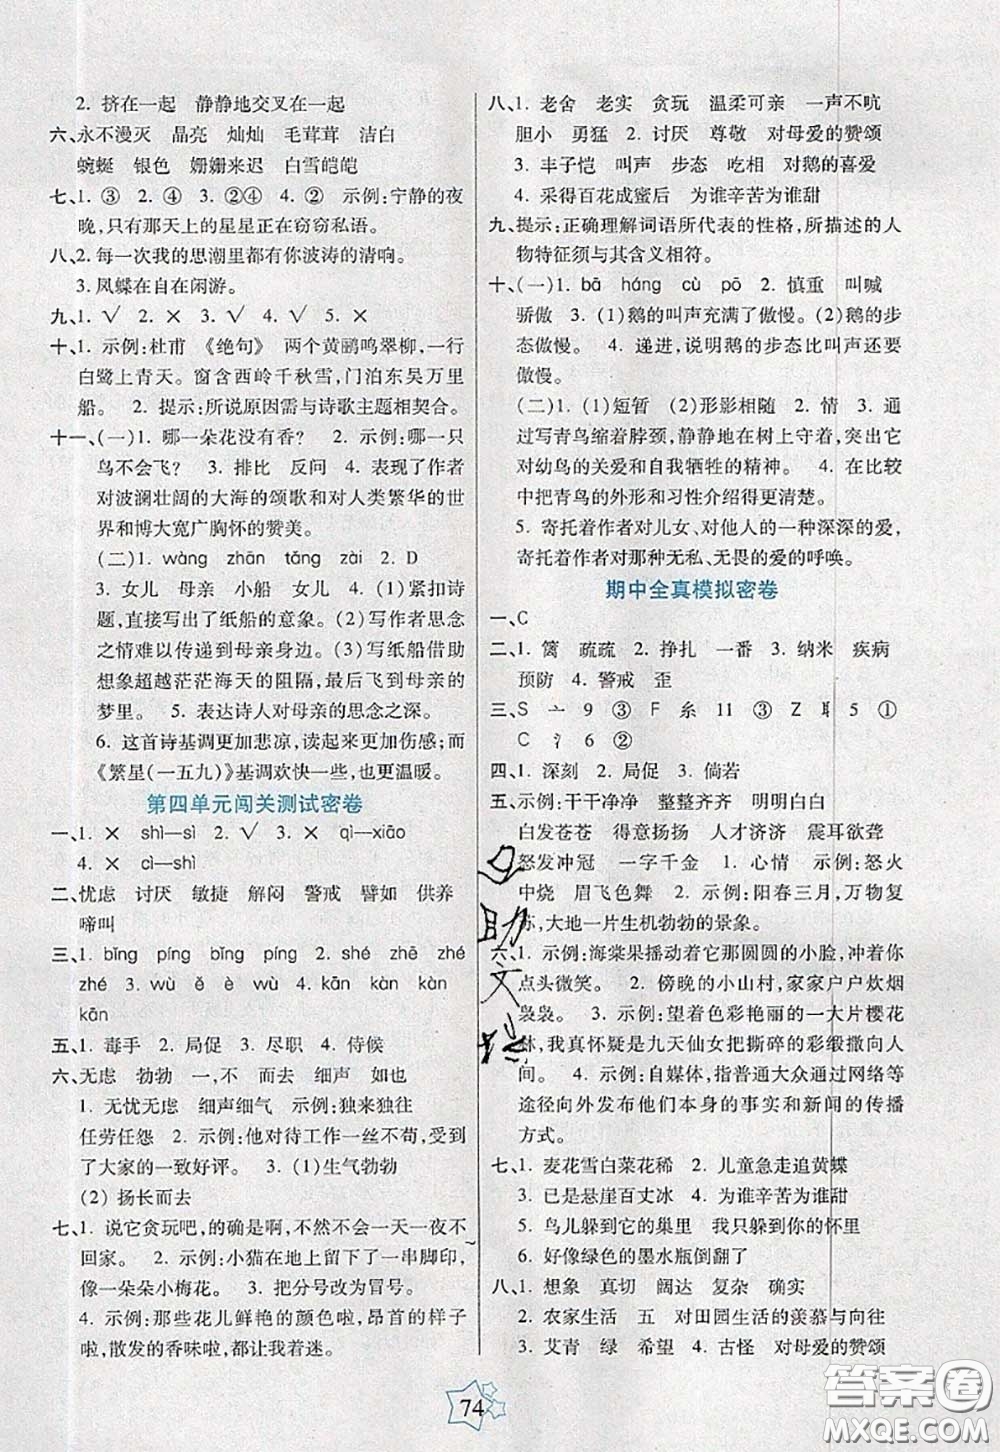 2. 挤在一起　静静地交叉在一起
六、永不漫灭　晶亮　灿灿　毛茸茸　洁白
蜿蜒　银色　姗姗来迟　白雪皑皑
七、1. ③　2. ④　3. ②④　4. ②　示例:宁静的夜
晚,只有那天上的星星正在窃窃私语。
八、2. 每一次我的思潮里都有你波涛的清响。
3. 凤蝶在自在闲游。
九、1. √　2. ×　3. √　4. √　5. ×
十、1. 示例:杜甫　《绝句》　两个黄鹂鸣翠柳,一行
白鹭上青天。窗含西岭千秋雪,门泊东吴万里
船。　2. 提示:所说原因需与诗歌主题相契合。
十一、(一)1. 哪一朵花没有香?　2. 示例:哪一只
鸟不会飞?　3. 排比　反问　4. 表现了作者
对波澜壮阔的大海的颂歌和对人类繁华的世
界和博大宽广胸怀的赞美。
(二)1. wàng　zhān　tǎng　zài　2. D
3. 女儿　母亲　小船　母亲　4. (1)紧扣诗
题,直接写出了纸船的意象。(2)写作者思念
之情难以传递到母亲身边。(3)写纸船借助
想象超越茫茫海天的阻隔,最后到达母亲的
梦里。　5. 表达诗人对母亲的思念之深。
6. 这首诗基调更加悲凉,读起来更加伤感;而
《繁星(一五九)》基调欢快一些,也更温暖。
第四单元闯关测试密卷
一、1. ×　shì—sì　2. √　3. ×　qì—xiāo
4. ×　cì—shì
二、忧虑　讨厌　敏捷　解闷　警戒　譬如　供养
啼叫
三、1. bǐng　píng　bǐng　píng　2. shé　zhē　zhé
zhé　3. wù　ě　è　wù　4. kān　kàn　kàn
kān
五、1. 毒手　2. 局促　3. 尽职　4. 侍候
六、无虑　勃勃　一,不　而去　细声　如也
1. 无忧无虑　细声细气　示例:独来独往
任劳任怨　2. 示例:他对待工作一丝不苟,受到
了大家的一致好评。　3. (1)生气勃勃
(2) 扬长而去
七、1. 说它贪玩吧,的确是啊,不然不会一天一夜不
回家。　2. 示例:小猫在地上留下了一串脚印,
像一朵朵小梅花。　3. 把分号改为冒号。
4. 示例:那些花儿鲜艳的颜色啦,昂首的样子
啦,散发的香味啦,都让我着迷。
八、1. 老舍　老实　贪玩　温柔可亲　一声不吭
胆小　勇猛　2. 讨厌　尊敬　对母爱的赞颂
3. 丰子恺　叫声　步态　吃相　对鹅的喜爱
4. 采得百花成蜜后　为谁辛苦为谁甜
九、提示:正确理解词语所代表的性格,所描述的人
物特征须与其含义相符。
十、(一)1. bā　háng　cù　pō　2. 慎重　叫喊
骄傲　3. (1)鹅的叫声充满了傲慢。(2)鹅的步
态傲慢。　4. 递进,说明鹅的步态比叫声还要
傲慢。
(二)1. (1)短暂　(2)形影相随　2. 情　3. 通
过写青鸟缩着脖颈,静静地在树上守着,突出它
对幼鸟的关爱和自我牺牲的精神。　4. 在比较
中把青鸟的外形和习性介绍得更清楚。
5. 寄托着作者对儿女、对他人的一种深深的爱,
寄托着作者对那种无私、无畏的爱的呼唤。
期中全真模拟密卷
一、C
二、1. 篱　疏疏　2. 挣扎　一番　3. 纳米　疾病
预防　4. 警戒　歪
三、S　亠　9　③　F　糸　11　③　Z　耳　5　①
C　氵　6　②
四、1. 深刻　2. 局促　3. 倘若
五、示例:干干净净　整整齐齐　明明白白
白发苍苍　得意扬扬　人才济济　震耳欲聋
怒发冲冠　一字千金　1. 心情　示例:怒火
中烧　眉飞色舞　2. 示例:阳春三月,万物复
苏,大地一片生机勃勃的景象。
六、1. 示例:海棠果摇动着它那圆圆的小脸,冲你
点头微笑。　2. 傍晚的小山村,家家户户炊烟
袅袅。　3. 示例:望着色彩艳丽的一大片樱花
林,我真怀疑是九天仙女把撕碎的彩缎撒向人
间。　4. 示例:自媒体,指普通大众通过网络等
途径向外发布他们本身的事实和新闻的传播
方式。
七、1. 麦花雪白菜花稀　2. 儿童急走追黄蝶
3. 已是悬崖百丈冰　4. 为谁辛苦为谁甜
5. 鸟儿躲到它的巢里　我只躲到你的怀里
6. 好像绿色的墨水瓶倒翻了
八、1. 想象　真切　阔达　复杂　确实
2. 农家生活　五　对田园生活的羡慕与向往
3. 艾青　绿　希望　4. 古怪　对母爱的赞颂
74
答案圈
MXQE.COM